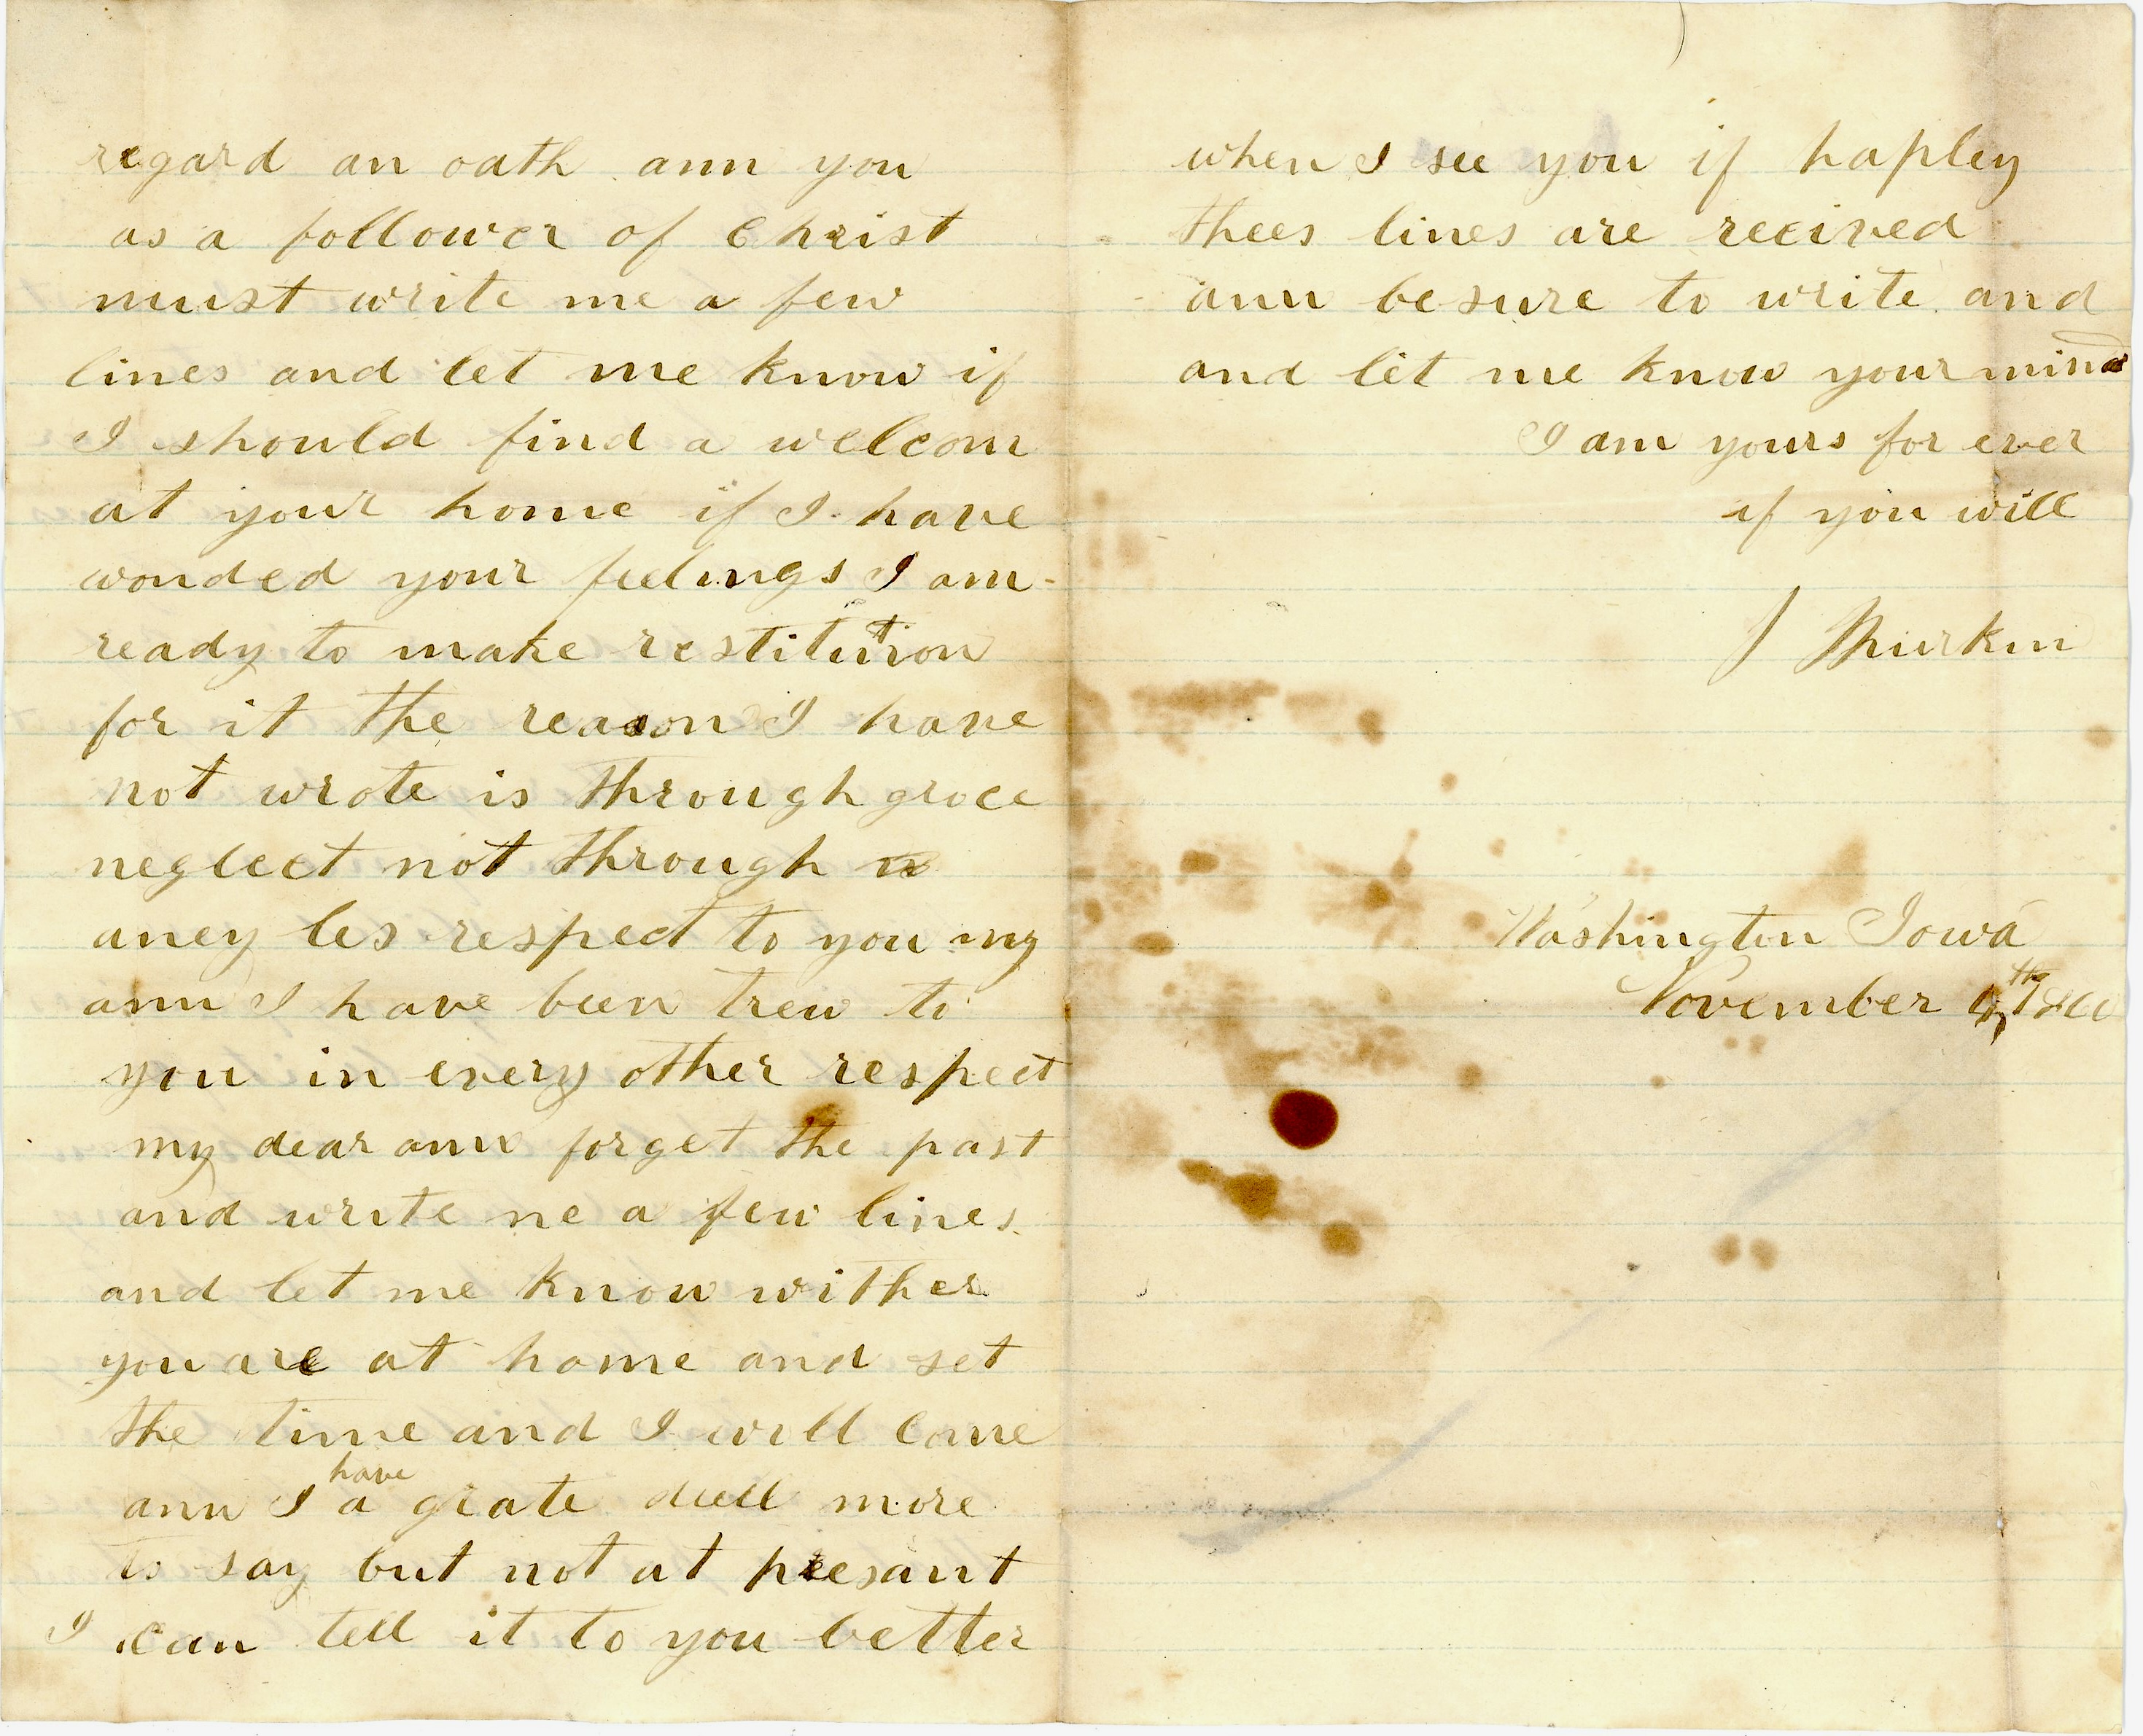 regard an oath ann you
as a follower of Christ
must write me a few
lines and let me know if
I should find a welcom
at your home if I have
wonded your feelings I am
ready to make restitution
for it the reason I have
not wrote is through groce
neglect not through
aney les respect to you my
ann I have been trew to
you in every other respect
my dear ann forget the past
and write me a few lines
and let me know wither
you are at home and set
the time and I will come
ann I have a grate deell more
to say but not at presant
I can tell it to you better
when I see you if hapley
thees lines are recived
ann be sure to write and
and let me know your mind
I am yours for ever
if you will
J
Washington Iowa
November